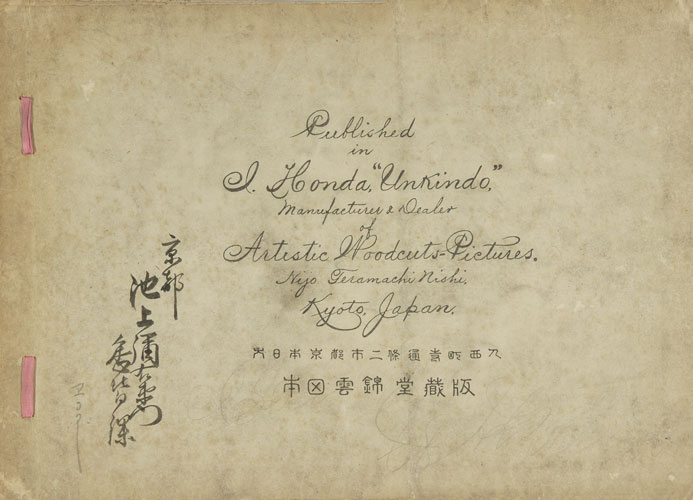 Published
in
I. Honda, "Unkindo,"
Manufacturer & Dealer
of
Artestic Woodcuts-Pictures.
Nijo Teramachi Nishi,
Kyoto, Japan.
大日本京都市二條通寺町西入
本田雲錦堂藏版
京都
池上